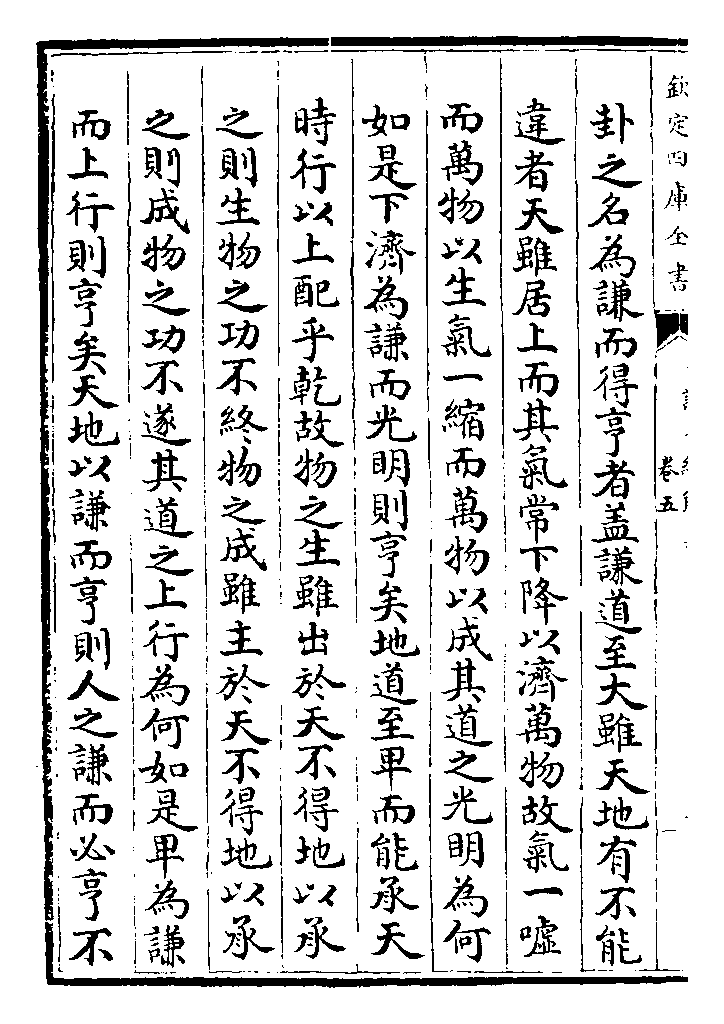 欽定四庫全書
卷五
卦之名為謙而得亨者盖謙道至大雖天地有不能
違者天雖居上而其氣常下降以濟萬物故氣一噓
而萬物以生氣一縮而萬物以成其道之光明為何
如是下濟為謙而光明則亨矣地道至卑而能承天
時行以上配乎乾故物之生雖出於天不得地以承
之則生物之功不終物之成雖主於天不得地以承
之則成物之功不遂其道之上行為何如是卑為謙
而上行則亨矣天地以謙而亨則人之謙而必亨不